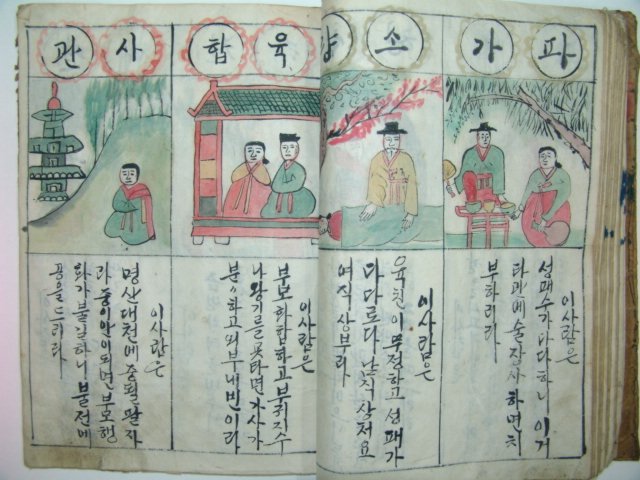 파가
이사람은
성패수가 다다하니 이거
타관에 술장사하면 치
부하리라
소
이사람은
육친이 무정하고 성패가
다다로다 남직상처요
여직상부라
육합
이사람은
부모화합하고 부귀지수
나 왕기를 못타면 가사가
분〃하고 외부내빈이라
사관
이사람은
명산대천에 중될 팔자
라 중이 안이되면 부모행
화가 불길하니 불전에
공을 드리라